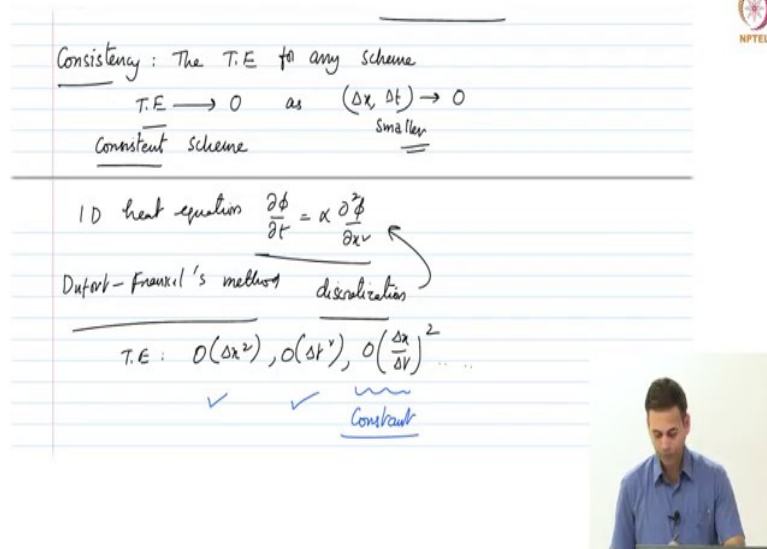 NPTEL
Consistency : The T.E for any scheme
T.E → 0 as (Δx, Δt) → 0
smaller
Consistent scheme
1D heat equation ∂φ/∂t = α ∂²φ/∂x²
Dufort-Frankel's method discretization
T.E : O(Δx²), O(Δt²), O(Δx/Δt)² ....
✓ ✓
Constant